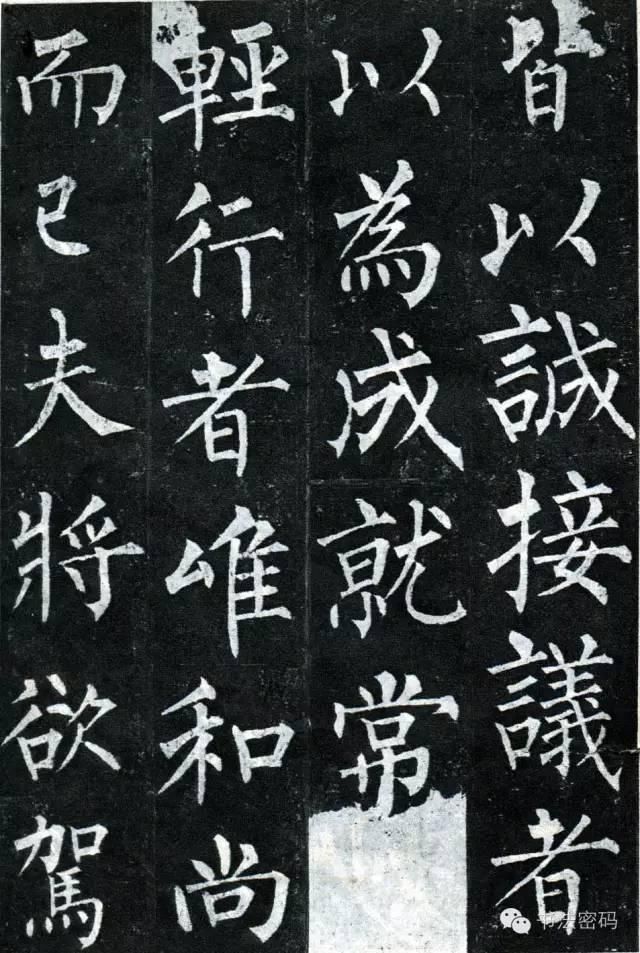 皆以誠接議者
以為成就常
輕行者唯和尚
而已夫將欲駕
书法密码